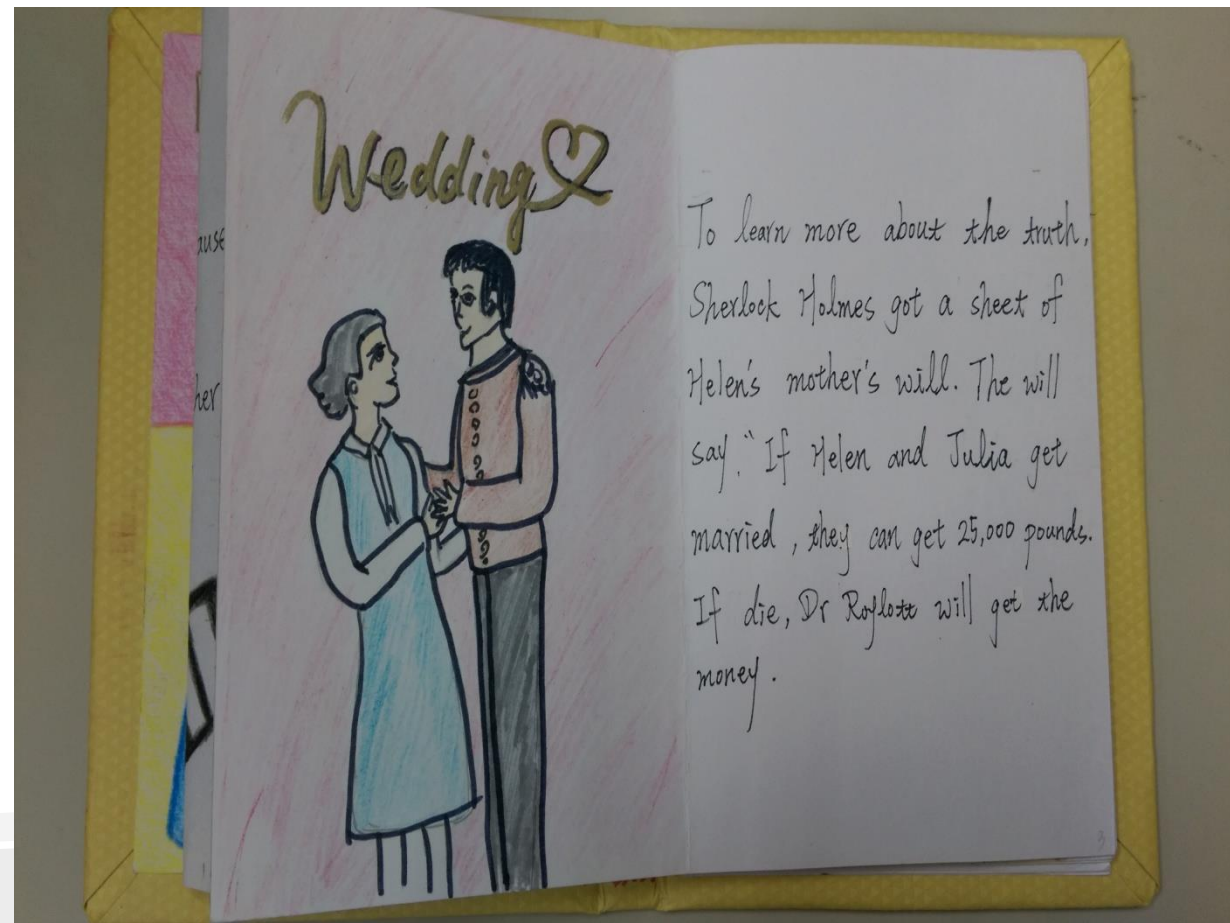 Wedding
ause
her
To learn more about the truth,
Sherlock Holmes got a sheet of
Helen's mother's will. The will
say, "If Helen and Julia get
married, they can get 25,000 pounds.
If die, Dr Roylott will get the
money.
3